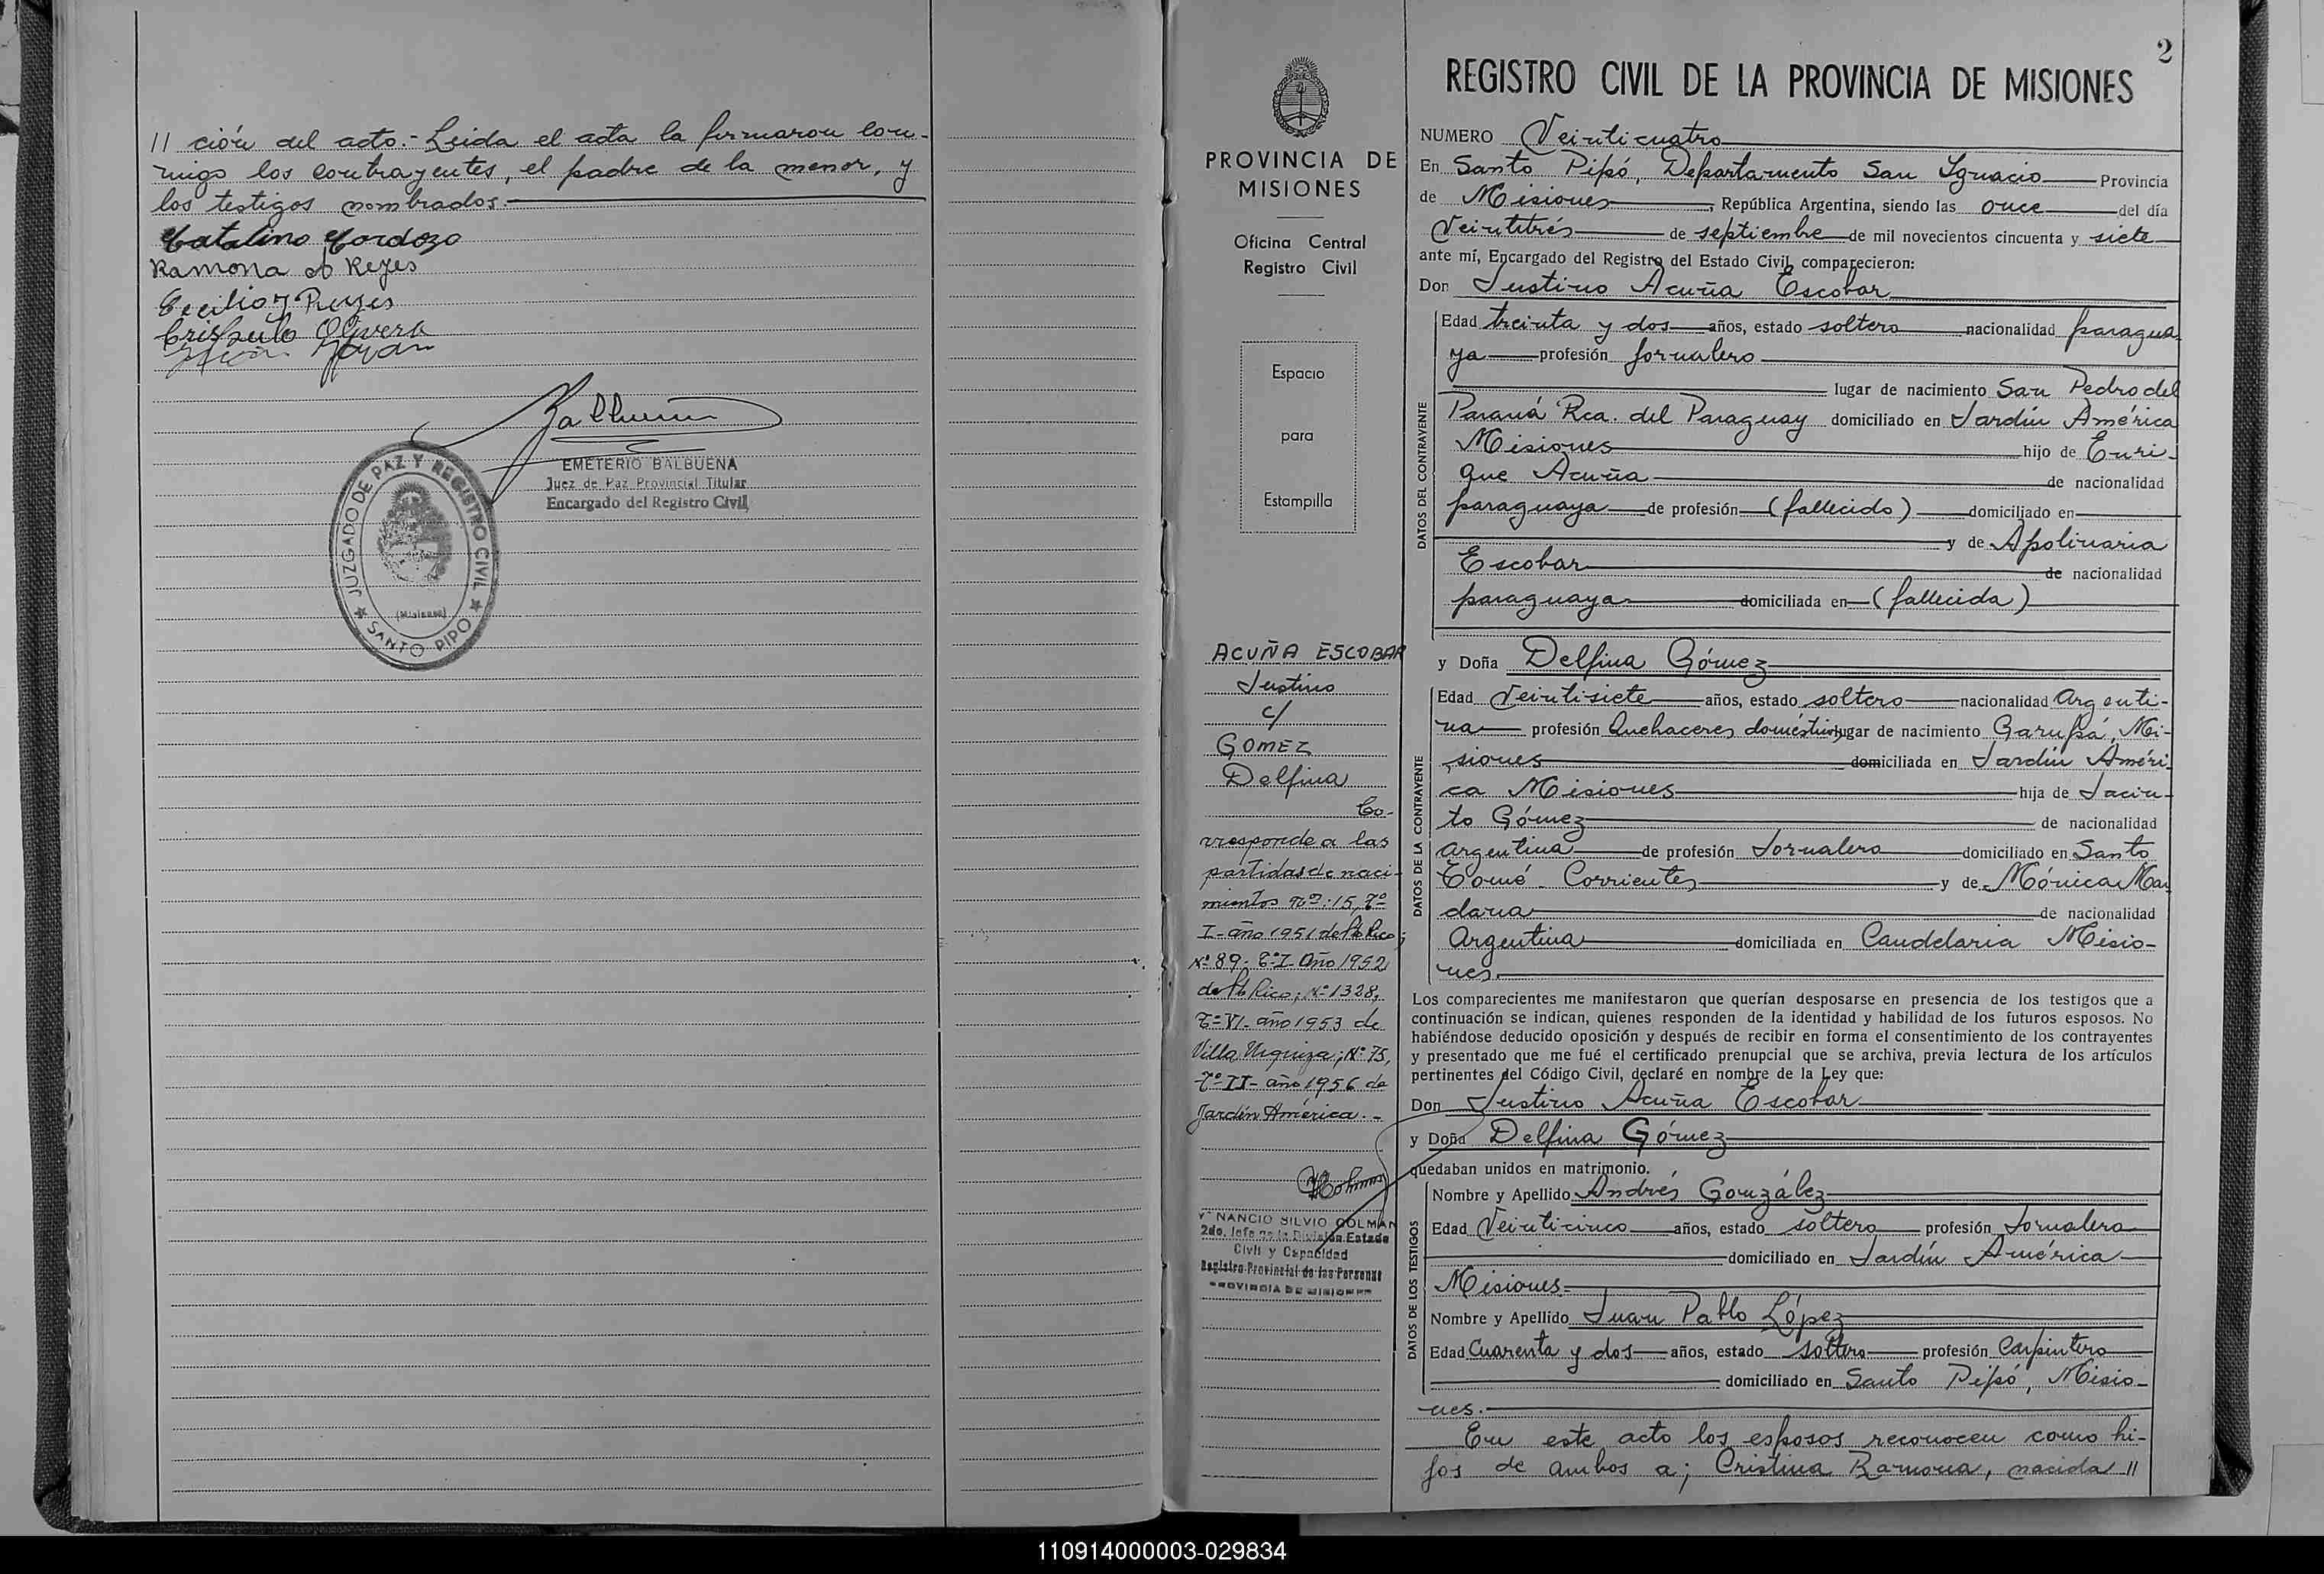 // ción del acto.- Leida el acta la firmaron con-
migo los contrayentes, el padre de la menor, y
los testigos nombrados.
Catalino Cordozo
Ramona A Reyes
Cecilio Reyes
Crispulo Olivera
Balbuena
EMETERIO BALBUENA
Juez de Paz Provincial Titular
Encargado del Registro Civil
JUZGADO DE PAZ Y REGISTRO CIVIL
(Misiones)
SANTO PIPO
PROVINCIA DE
MISIONES
Oficina Central
Registro Civil
Espacio
para
Estampilla
ACUÑA ESCOBAR
Justino
c/
GOMEZ
Delfina
Co-
rresponde a las
partidas de naci-
mientos nº: 15, Tº
I- año 1951 de Pto Rico;
Nº 89- Tº I- Año 1952
de Pto Rico; Nº 1328,
Tº VI- año 1953 de
Villa Urquiza; Nº 75,
Tº II- año 1956 de
Jardín América.-
VENANCIO SILVIO COLMAN
2do. Jefe de la División Estado
Civil y Capacidad
Registro Provincial de las Personas
PROVINCIA DE MISIONES
2
REGISTRO CIVIL DE LA PROVINCIA DE MISIONES
NUMERO Veinticuatro
En Santo Pipó, Departamento San Ignacio Provincia
de Misiones, República Argentina, siendo las once del día
Veintitrés de septiembre de mil novecientos cincuenta y siete
ante mí, Encargado del Registro del Estado Civil, comparecieron:
Don Justino Acuña Escobar
DATOS DEL CONTRAYENTE
Edad treinta y dos años, estado soltero nacionalidad paragua
ya profesión jornalero
lugar de nacimiento San Pedro del
Paraná Rca. del Paraguay domiciliado en Jardín América
Misiones hijo de Enri-
que Acuña de nacionalidad
paraguaya de profesión (fallecido) domiciliado en
y de Apolinaria
Escobar de nacionalidad
paraguaya domiciliada en (fallecida)
y Doña Delfina Gómez
DATOS DE LA CONTRAYENTE
Edad Veintisiete años, estado soltero nacionalidad Argenti-
na profesión Quehaceres domésticos lugar de nacimiento Garupá, Mi-
siones domiciliada en Jardín Améri-
ca Misiones hija de Jacin-
to Gómez de nacionalidad
argentina de profesión Jornalero domiciliado en Santo
Tomé- Corrientes y de Mónica Ma
dana de nacionalidad
Argentina domiciliada en Candelaria Misio-
nes.
Los comparecientes me manifestaron que querían desposarse en presencia de los testigos que a
continuación se indican, quienes responden de la identidad y habilidad de los futuros esposos. No
habiéndose deducido oposición y después de recibir en forma el consentimiento de los contrayentes
y presentado que me fué el certificado prenupcial que se archiva, previa lectura de los artículos
pertinentes del Código Civil, declaré en nombre de la Ley que:
Don Justino Acuña Escobar
y Doña Delfina Gómez
quedaban unidos en matrimonio.
DATOS DE LOS TESTIGOS
Nombre y Apellido Andrés González
Edad Veinticinco años, estado soltero profesión Jornalero
domiciliado en Jardín América
Misiones.
Nombre y Apellido Juan Pablo López
Edad Cuarenta y dos años, estado soltero profesión Carpintero
domiciliado en Santo Pipó, Misio-
nes.
En este acto los esposos reconocen como hi-
jos de ambos a; Cristina Ramona, nacida //
110914000003-029834